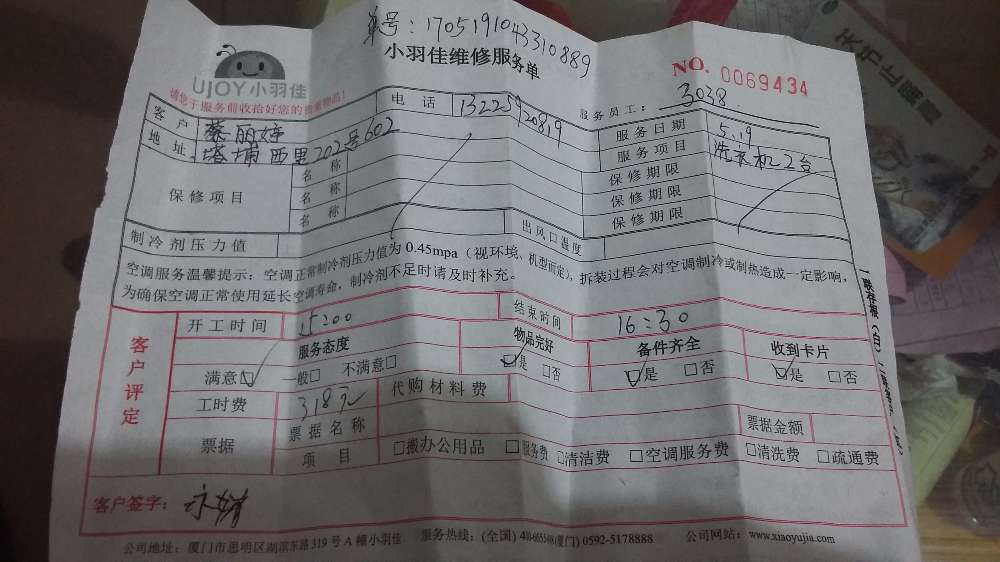 单号：1705191043310889
UJOY小羽佳
小羽佳维修服务单
NO. 0069434
请您于服务前收拾好您的贵重物品！
服务员工：3038
客户 蔡丽婷 电话 13225920819 服务日期 5.19
地址 塔埔西里202号602 服务项目 洗衣机2台
保修项目 名称 保修期限
名称 保修期限
名称 保修期限
制冷剂压力值 出风口温度
空调服务温馨提示：空调正常制冷剂压力值为0.45mpa（视环境、机型而定），拆装过程会对空调制冷或制热造成一定影响，
为确保空调正常使用延长空调寿命，制冷剂不足时请及时补充。
客户评定
开工时间 15:00 结束时间 16:30
服务态度 物品完好 备件齐全 收到卡片
满意☑ 一般□ 不满意□ ☑是 □否 ☑是 □否 ☑是 □否
工时费 318元 代购材料费
票据 票据名称 票据金额
项目 □搬办公用品 □服务费 □清洁费 □空调服务费 □清洗费 □疏通费
客户签字：
公司地址：厦门市思明区湖滨东路319号A幢小羽佳 服务热线：(全国) (厦门) 0592-5178888 公司网站：www.xiaoyujia.com
一联存根（白）